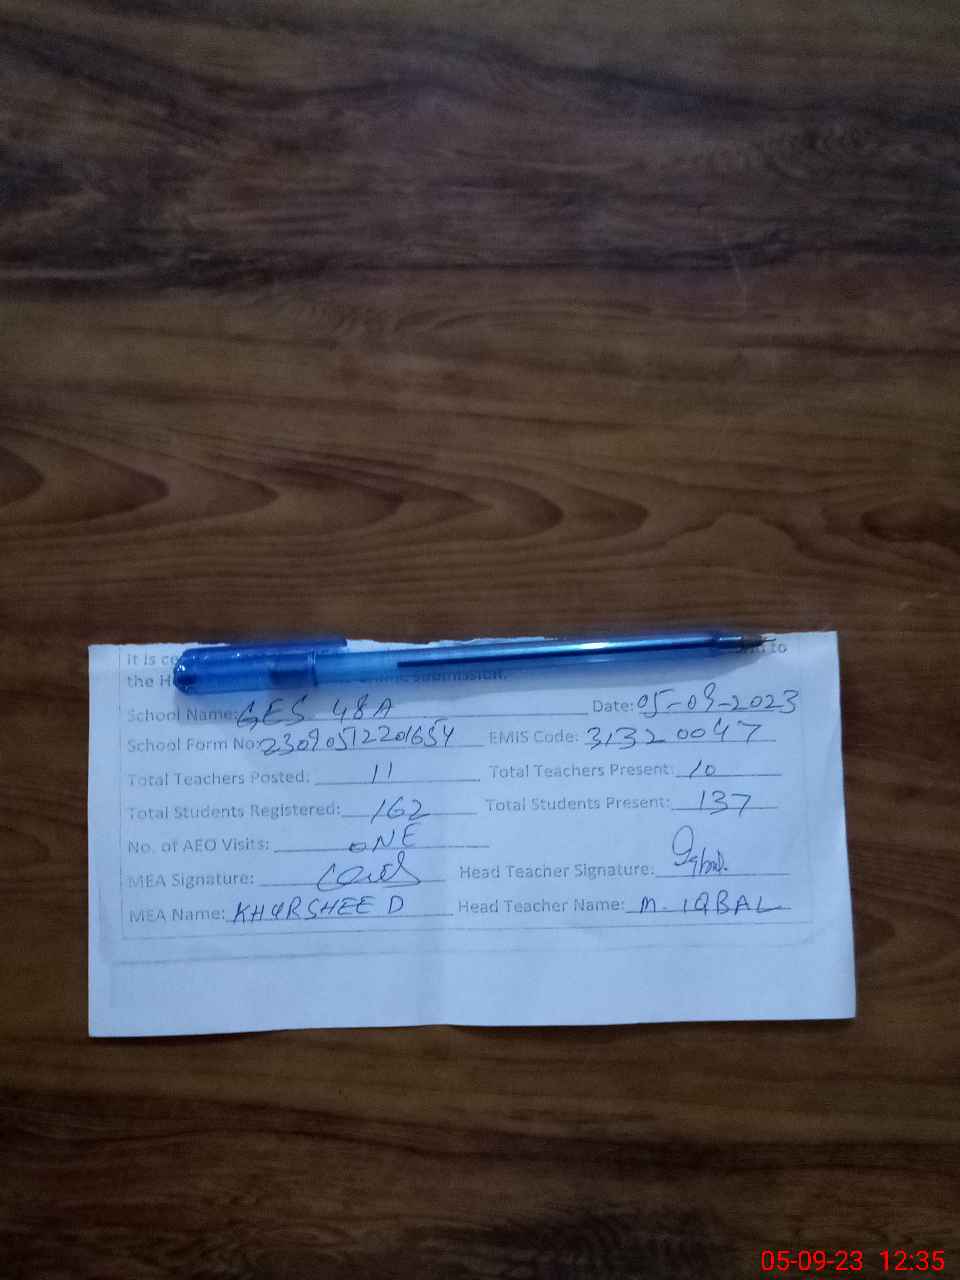 It is
the submission.
School Name: GES 48A Date: 05-09-2023
School Form No: 23090512201654 EMIS Code: 31320047
Total Teachers Posted: 11 Total Teachers Present: 10
Total Students Registered: 162 Total Students Present: 137
No. of AEO Visits: ONE
MEA Signature: Head Teacher Signature: Iqbal
MEA Name: KHURSHEED Head Teacher Name: M. IQBAL
05-09-23 12:35